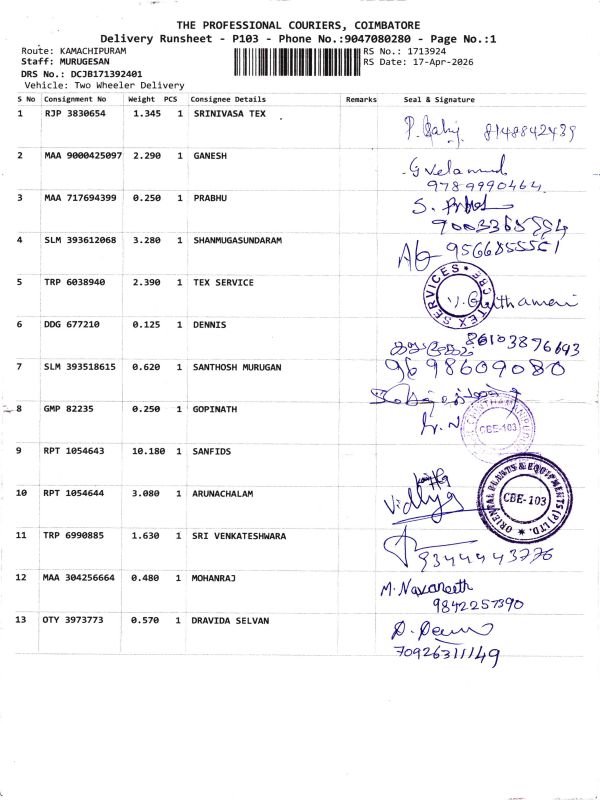 THE PROFESSIONAL COURIERS, COIMBATORE
Delivery Runsheet - P103 - Phone No.:9047080280 - Page No.:1
Route: KAMACHIPURAM RS No.: 1713924
Staff: MURUGESAN RS Date: 17-Apr-2026
DRS No.: DCJB171392401
Vehicle: Two Wheeler Delivery
S No Consignment No Weight PCS Consignee Details Remarks Seal & Signature
1 RJP 3830654 1.345 1 SRINIVASA TEX 8148842439
2 MAA 9000425097 2.290 1 GANESH
9789990464
3 MAA 717694399 0.250 1 PRABHU S.
4 SLM 393612068 3.280 1 SHANMUGASUNDARAM
5 TRP 6038940 2.390 1 TEX SERVICE CBE TEX SERVICES
6 DDG 677210 0.125 1 DENNIS
7 SLM 393518615 0.620 1 SANTHOSH MURUGAN 9698609080
8 GMP 82235 0.250 1 GOPINATH CBE-103
9 RPT 1054643 10.180 1 SANFIDS
10 RPT 1054644 3.080 1 ARUNACHALAM Vidhya
ORIENTAL PLANTS & EQUIPMENTS (P) LTD. CBE-103
11 TRP 6990885 1.630 1 SRI VENKATESHWARA
9344443776
12 MAA 304256664 0.480 1 MOHANRAJ M. Navaneeth
9842257390
13 OTY 3973773 0.570 1 DRAVIDA SELVAN
70926311149